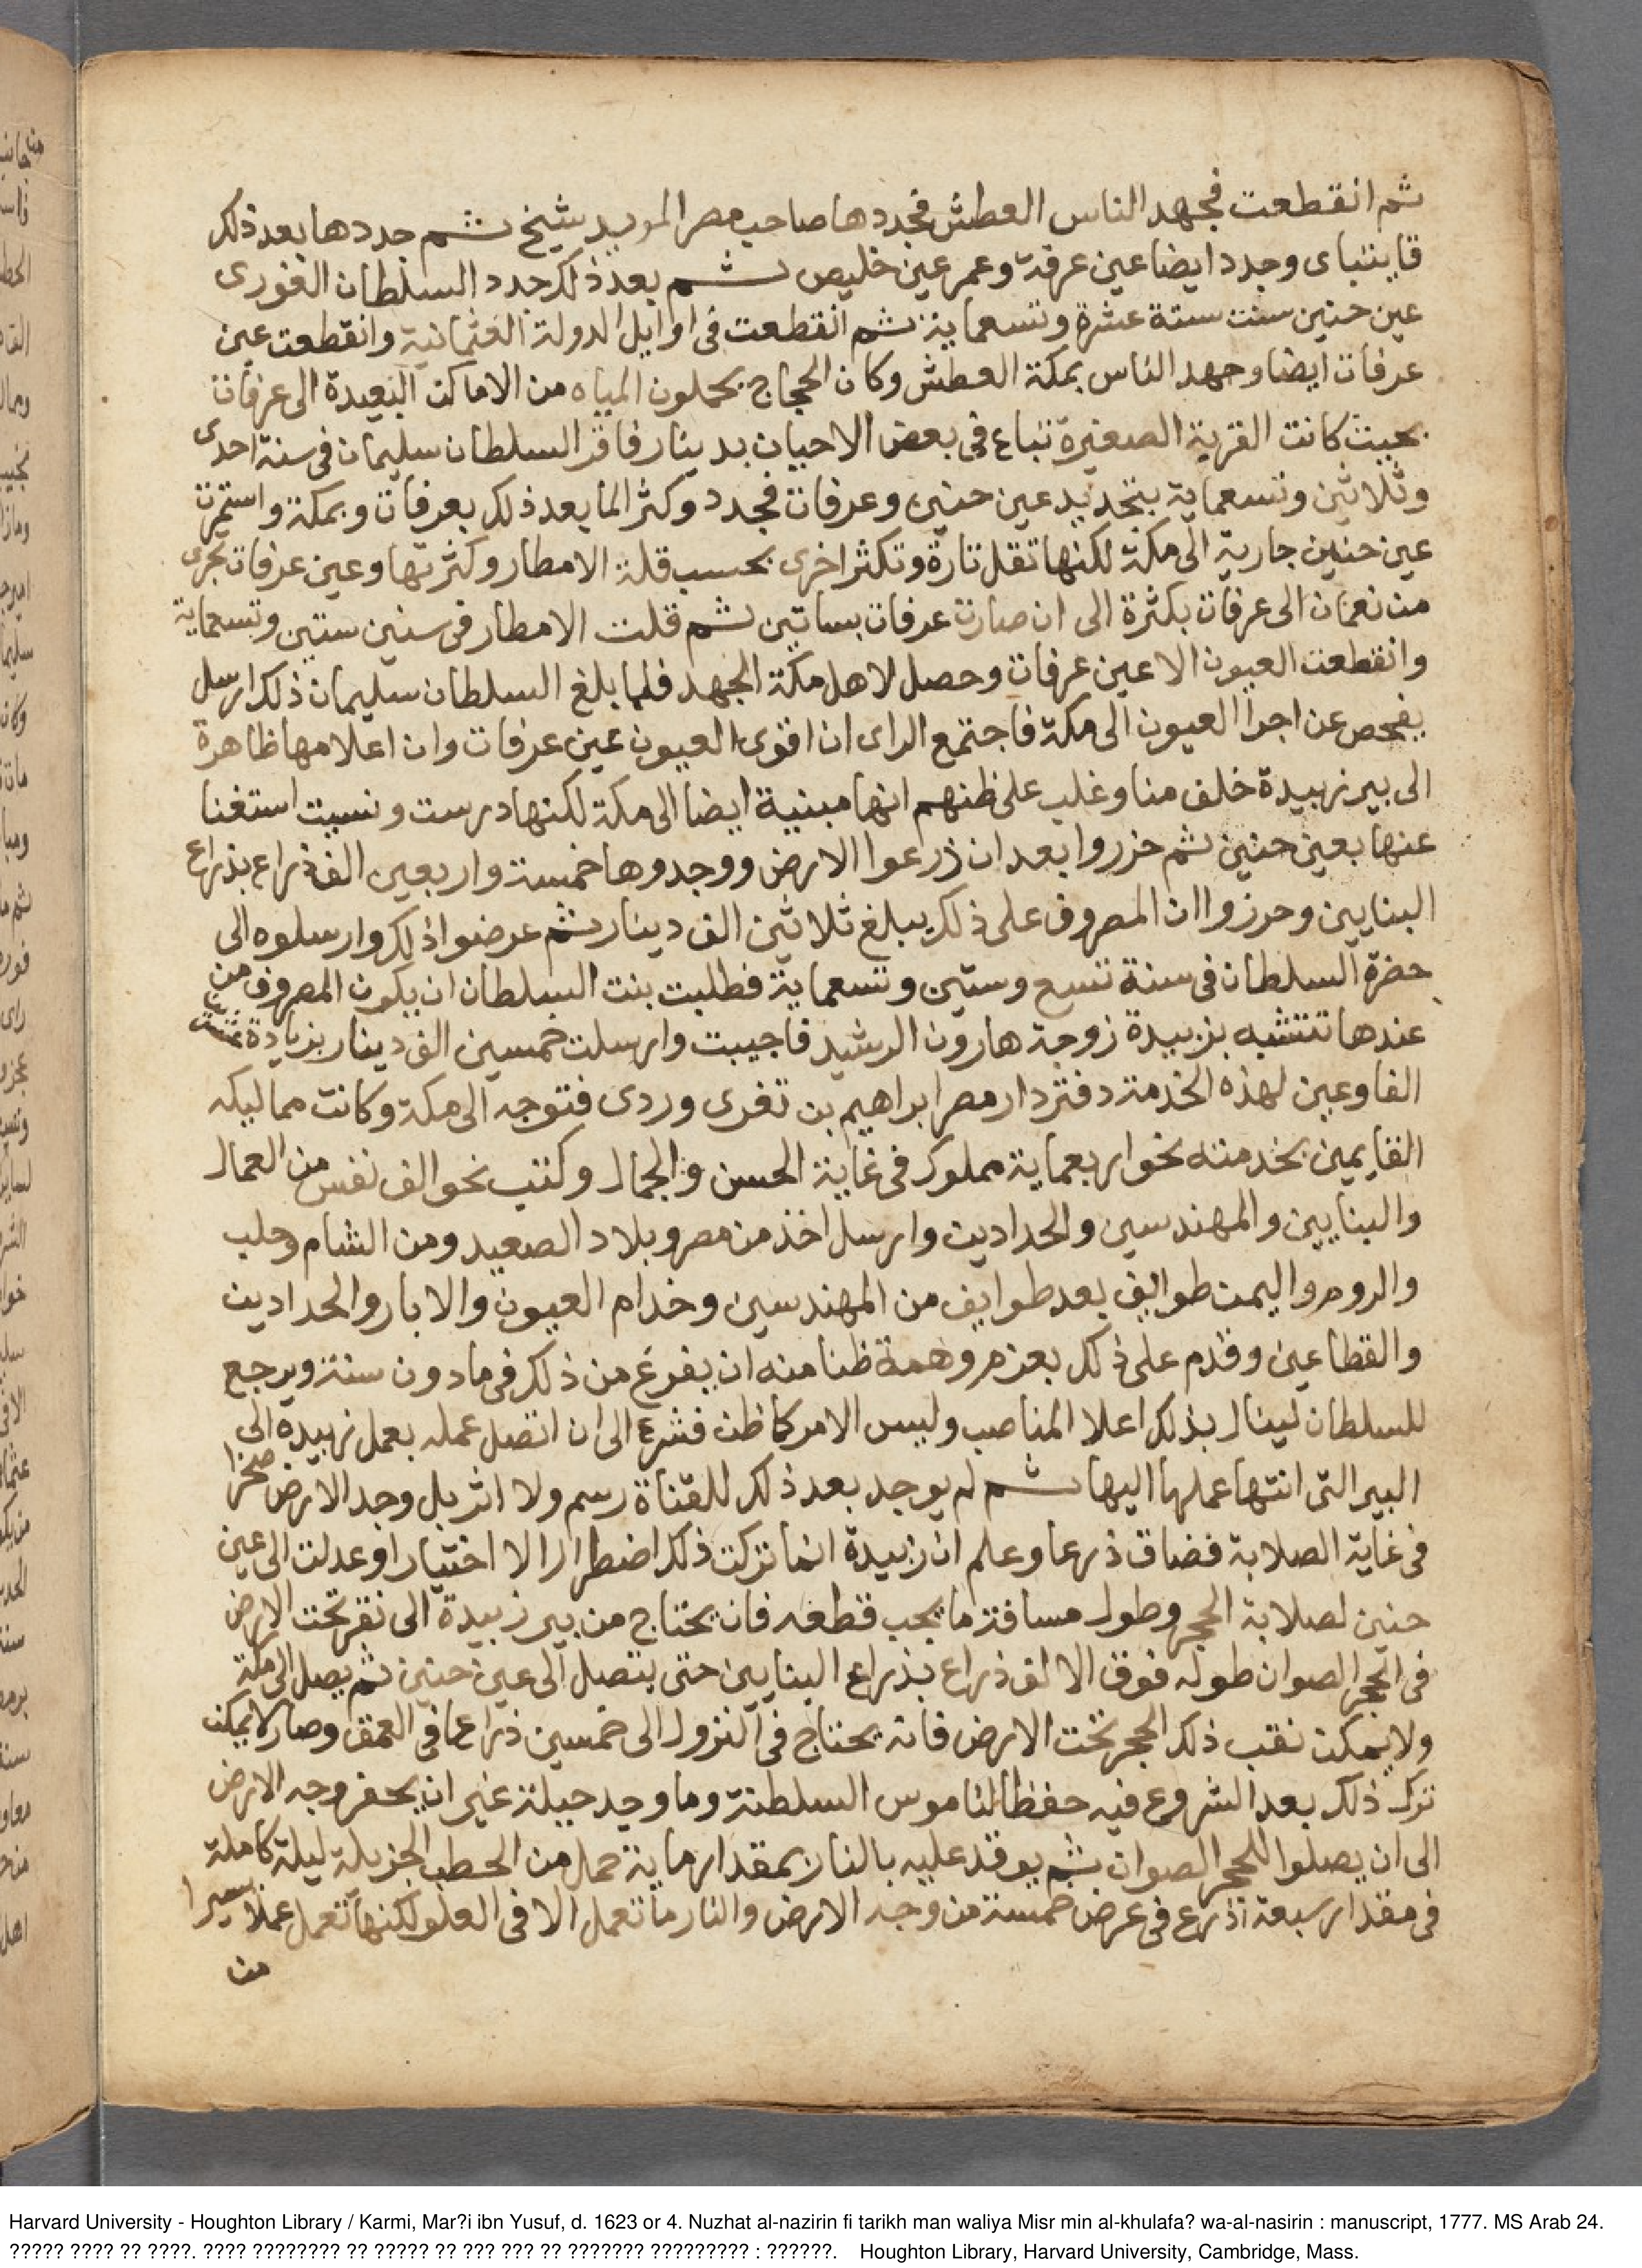 ثم انقطعت فجهد الناس العطش فجددها صاحب مصر المويد شيخ ثم جددها بعد ذلك
قايتباى وجدد ايضا عين عرفة وعمر عين خليص ثم بعد ذلك جدد السلطان الغورى
عين حنين سنت ستة عشرة وتسعماية ثم انقطعت فى اوايل الدولة العثمانية وانقطعت عين
عرفات ايضا وجهد الناس بمكة العطش وكان الحجاج يحملون المياه من الاماكن البعيدة الى عرفات
بحيث كانت القربة الصغيرة تباع فى بعض الاحيان بدينار فاقر السلطان سليمان فى سنة احدى
وثلاثين وتسعماية بتجديد عين حنين وعرفات فجدد وكثر الما بعد ذلك بعرفات وبمكة واستمرت
عين حنين جارية الى مكة لكنها تقل تارة وتكثر اخرى بحسب قلة الامطار وكثرتها وعين عرفات تجرى
من نعمان الى عرفات بكثرة الى ان صارت عرفات بساتين ثم قلت الامطار فى سنين ستين وتسعماية
وانقطعت العيون الا عين عرفات وحصل لاهل مكة الجهد فلما بلغ السلطان سليمان ذلك ارسل
يفحص عن اجرا العيون الى مكة فاجتمع الراى ان اقوى العيون عين عرفات وان اعلامها ظاهرة
الى بير زبيدة خلف منا وغلب على ظنهم انها مبنية ايضا الى مكة لكنها درست ونسيت استغنا
عنها بعين حنين ثم حزروا بعد ان ذرعوا الارض ووجدوها خمسة واربعين الف ذراع بذراع
البنايين وحرزوا ان المصروف على ذلك يبلغ ثلاثين الف دينار ثم عرضوا ذلك وارسلوه الى
حضرة السلطان فى سنة تسع وستين وتسعماية فطلبت بنت السلطان ان يكون المصروف من
عندها تتشبه بزبيدة زوجة هارون الرشيد فاجيبت وارسلت خمسين الف دينار بزيادة عشرين
الفا وعين لهذه الخدمة دفتردار مصر ابراهيم بن تغرى وردى فتوجه الى مكة وكانت مماليكه
القايمين بخدمته نحو اربعماية مملوك فى غاية الحسن والجمال وكتب نحو الف نفس من العمال
والبنايين والمهندسين والحدادين وارسل اخذ من مصر وبلاد الصعيد ومن الشام وحلب
والروم واليمن طوايف بعد طوايف من المهندسين وخدام العيون والابار والحدادين
والقطاعين وقدم على ذلك بعزم وهمة ظنا منه ان يفرغ من ذلك فى مادون سنة ويرجع
للسلطان لينال بذلك اعلا المناصب وليس الامر كما ظن فشرع الى ان اتصل عمله بعمل زبيدة الى
البير التى انتها عملها اليها ثم لم يوجد بعد ذلك للقناة رسم ولا اثر بل وجد الارض صخرا
فى غاية الصلابة فضاق ذرعا وعلم ان زبيدة انما تركت ذلك اضطرارا لا اختيارا وعدلت الى عين
حنين لصلابة الحجر وطول مسافة ما يجب قطعه فان يحتاج من بير زبيدة الى نقر تحت الارض
فى الحجر الصوان طوله فوق الالف ذراع بذراع البنايين حتى يتصل الى عين حنين ثم يصل الى مكة
ولا يمكن نقب ذلك الحجر تحت الارض فانه يحتاج فى النزول الى خمسين ذراعا فى العمق وصار لا يمكن
ترك ذلك بعد الشروع فيه حفظا لناموس السلطنة وما وجد حيلة غير ان يحفر وجه الارض
الى ان يصلوا للحجر الصوان ثم يوقد عليه بالنار بمقدار ماية حمل من الحطب الجزيلة ليلة كاملة
فى مقدار سبعة اذرع فى عرض خمسة من وجه الارض والنار ما تعمل الا فى العلو لكنها تعمل عملا يسيرا
من
Harvard University - Houghton Library / Karmi, Mar?i ibn Yusuf, d. 1623 or 4. Nuzhat al-nazirin fi tarikh man waliya Misr min al-khulafa? wa-al-nasirin : manuscript, 1777. MS Arab 24.
????? ???? ?? ????. ???? ???????? ?? ????? ?? ??? ??? ?? ??????? ????????? : ??????. Houghton Library, Harvard University, Cambridge, Mass.